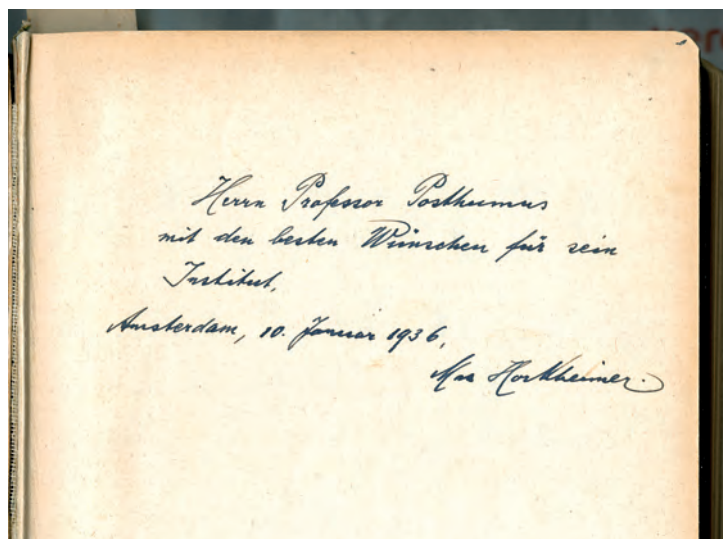 Herrn Professor Posthumus
mit den besten Wünschen für sein
Institut.
Amsterdam, 10. Januar 1936.
Max Horkheimer.